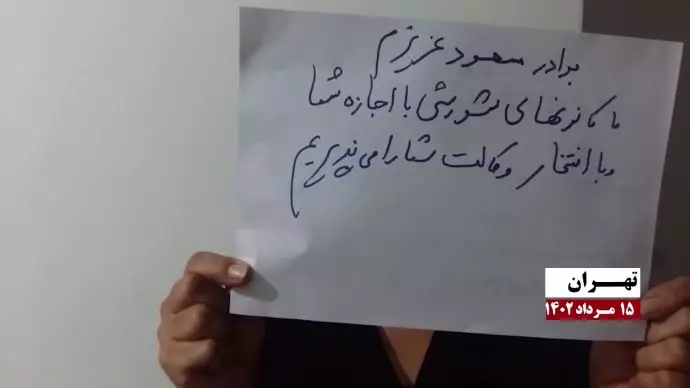 برادر مسعود عزیزم
ما کانونهای شورشی با اجازه شما
و با افتخار وکالت شما را می پذیریم
تهران
۱۵ مرداد ۱۴۰۲